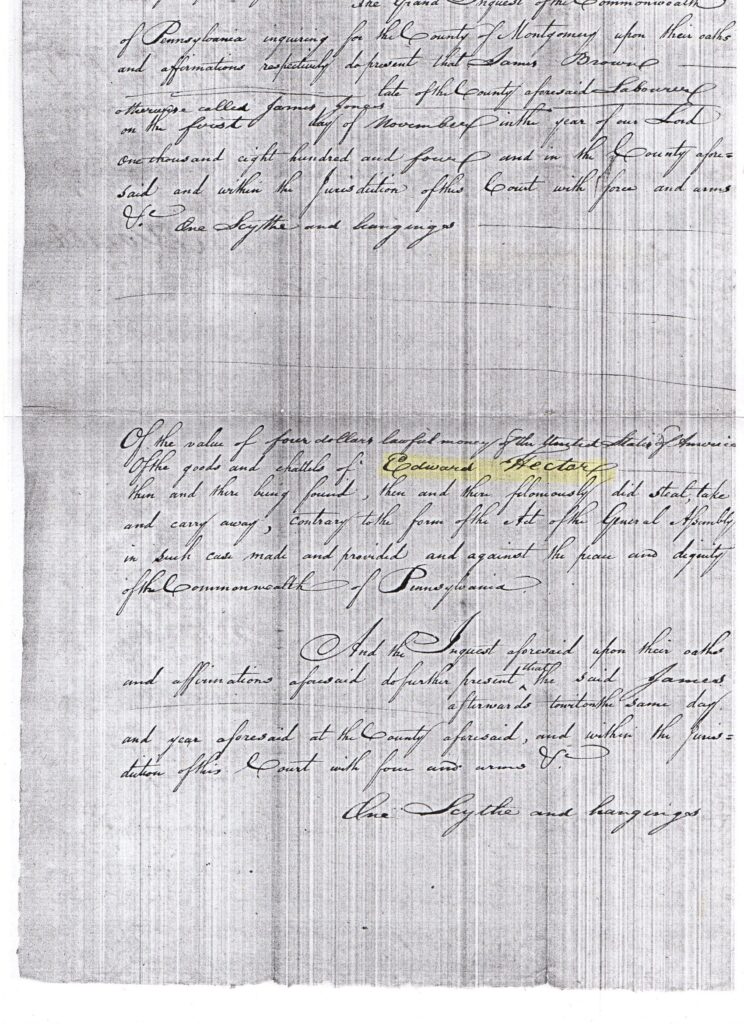 The Grand Inquest of the Commonwealth
of Pennsylvania inquiring for the County of Montgomery upon their oaths
and affirmations respectively do present that James Brown
late of the County aforesaid Labourer
otherwise called James Jones
on the first day of November in the year of our Lord
one thousand eight hundred and four and in the County afore=
said and within the Jurisdiction of this Court with force and arms
&c One Scythe and hangings
Of the value of four dollars lawful money of the United States of America
Of the goods and chattels of Edward Hector
then and there being found, then and there feloniously did steal, take
and carry away, contrary to the form of the Act of the General Assembly
in such case made and provided and against the peace and dignity
of the Commonwealth of Pennsylvania.
And the Inquest aforesaid upon their oaths
and affirmations aforesaid do further present that the said James
afterwards to wit on the same day
and year aforesaid at the County aforesaid, and within the Juris=
diction of this Court with force and arms &c
One Scythe and hangings